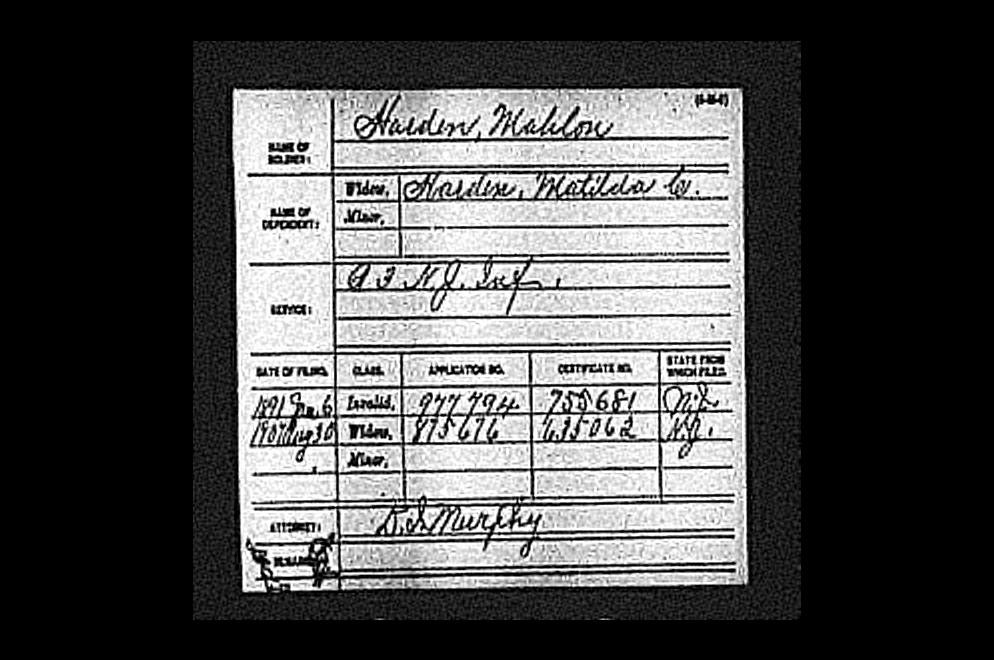 (3-26-07)
Harden, Mahlon
NAME OF SOLDIER:
NAME OF DEPENDENT:
Widow, Harden, Matilda C.
Minor,
SERVICE: N.J. Inf.
DATE OF FILING. CLASS. APPLICATION NO. CERTIFICATE NO. STATE FROM WHICH FILED.
1891 Jan. 6 Invalid, 977794 755681 N.J.
1907 Aug 30 Widow, 875676 635062 N.J.
Minor,
ATTORNEY: Murphy
REMARKS: